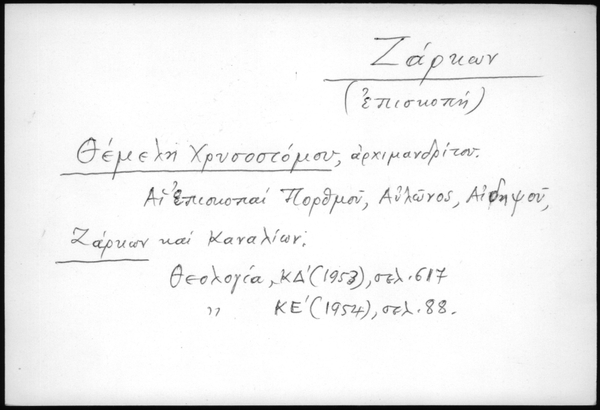 Ζάρκων
(ἐπισκοπή)
Θέμελη Χρυσοστόμου, ἀρχιμανδρίτου.
Αἱ Ἐπισκοπαί Πορθμοῦ, Αὐλῶνος, Αἰδηψοῦ,
Ζάρκων καί Καναλίων.
Θεολογία, ΚΔ' (1953), σελ. 617
" ΚΕ' (1954), σελ. 88.